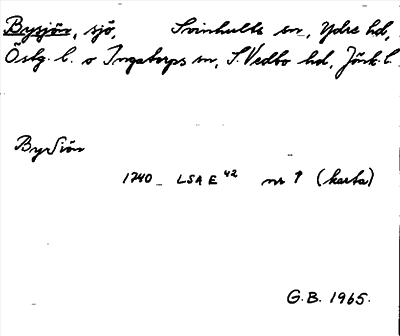 Bysjön, sjö, Svinhults sn, Ydre hd,
Östg. l. o Ingatorps sn, S. Vedbo hd, Jönk. l.
By Siön
1740 LSA E 42 nr 1 (karta)
G.B. 1965.